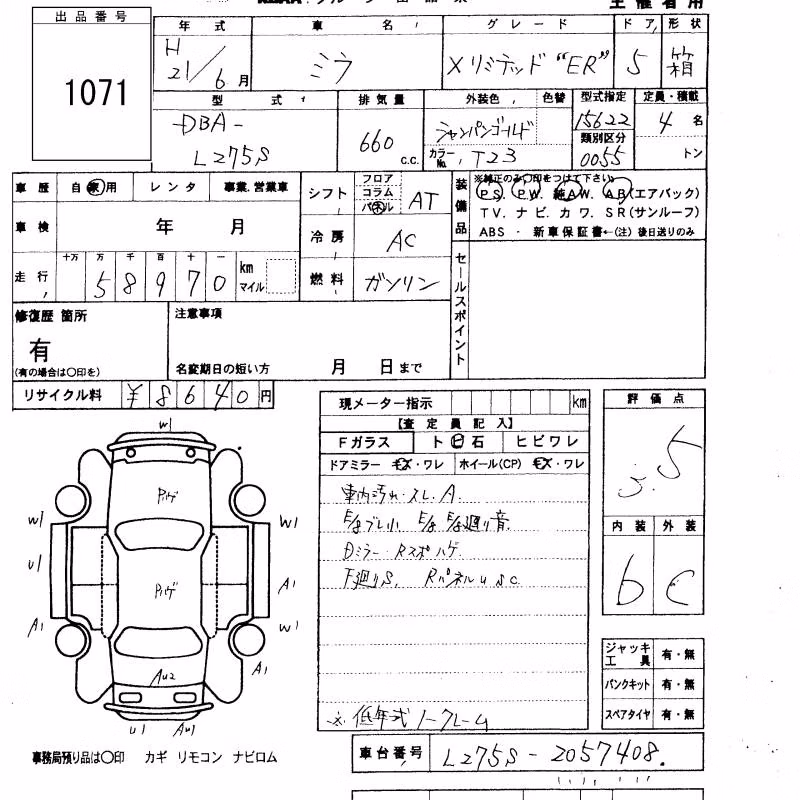 出品番号
1071
主催者用
年式 車名 グレード ドア 形状
H21/6月 ミラ Xリミテッド“ER” 5 箱
型式 排気量 外装色 色替 型式指定 定員・積載
DBA-L275S 660 C.C. シャンパンゴールド 15622 4名
カラーNo. T23 類別区分 0055 トン
車歴 自家用 レンタ 事業.営業車
車検 年 月
走行 十万 万 千 百 十 一 km マイル
58970
シフト フロア コラム パネル AT
冷房 AC
燃料 ガソリン
装備品 ※純正のみ〇印をつけて下さい
PS. PW. 純AW. AB(エアバック)
TV. ナビ. カワ. SR(サンルーフ)
ABS ・ 新車保証書←(注) 後日送りのみ
セールスポイント
修復歴 箇所
有
(有の場合は〇印を)
注意事項
名変期日の短い方 月 日まで
リサイクル料 ¥8640円
現メーター指示 km
【査定員記入】
Fガラス ト ビ 石 ヒビワレ
ドアミラー キズ・ワレ ホイール(CP) キズ・ワレ
車内汚れ・スレ. A.
E/gブレ小 E/g E/g廻り音
Dミラー・Rスポハゲ
下廻りS. Rパネル u s c
※低年式ノークレーム
評価点
3.5
内装 外装
b c
ジャッキ工具 有・無
パンクキット 有・無
スペアタイヤ 有・無
W1
ハゲ
W1 W1
U1
ハゲ A1
A1 W1
AU2 A1
U1 AW1
事務局預り品は〇印 カギ リモコン ナビロム
車台番号 L275S-2057408.